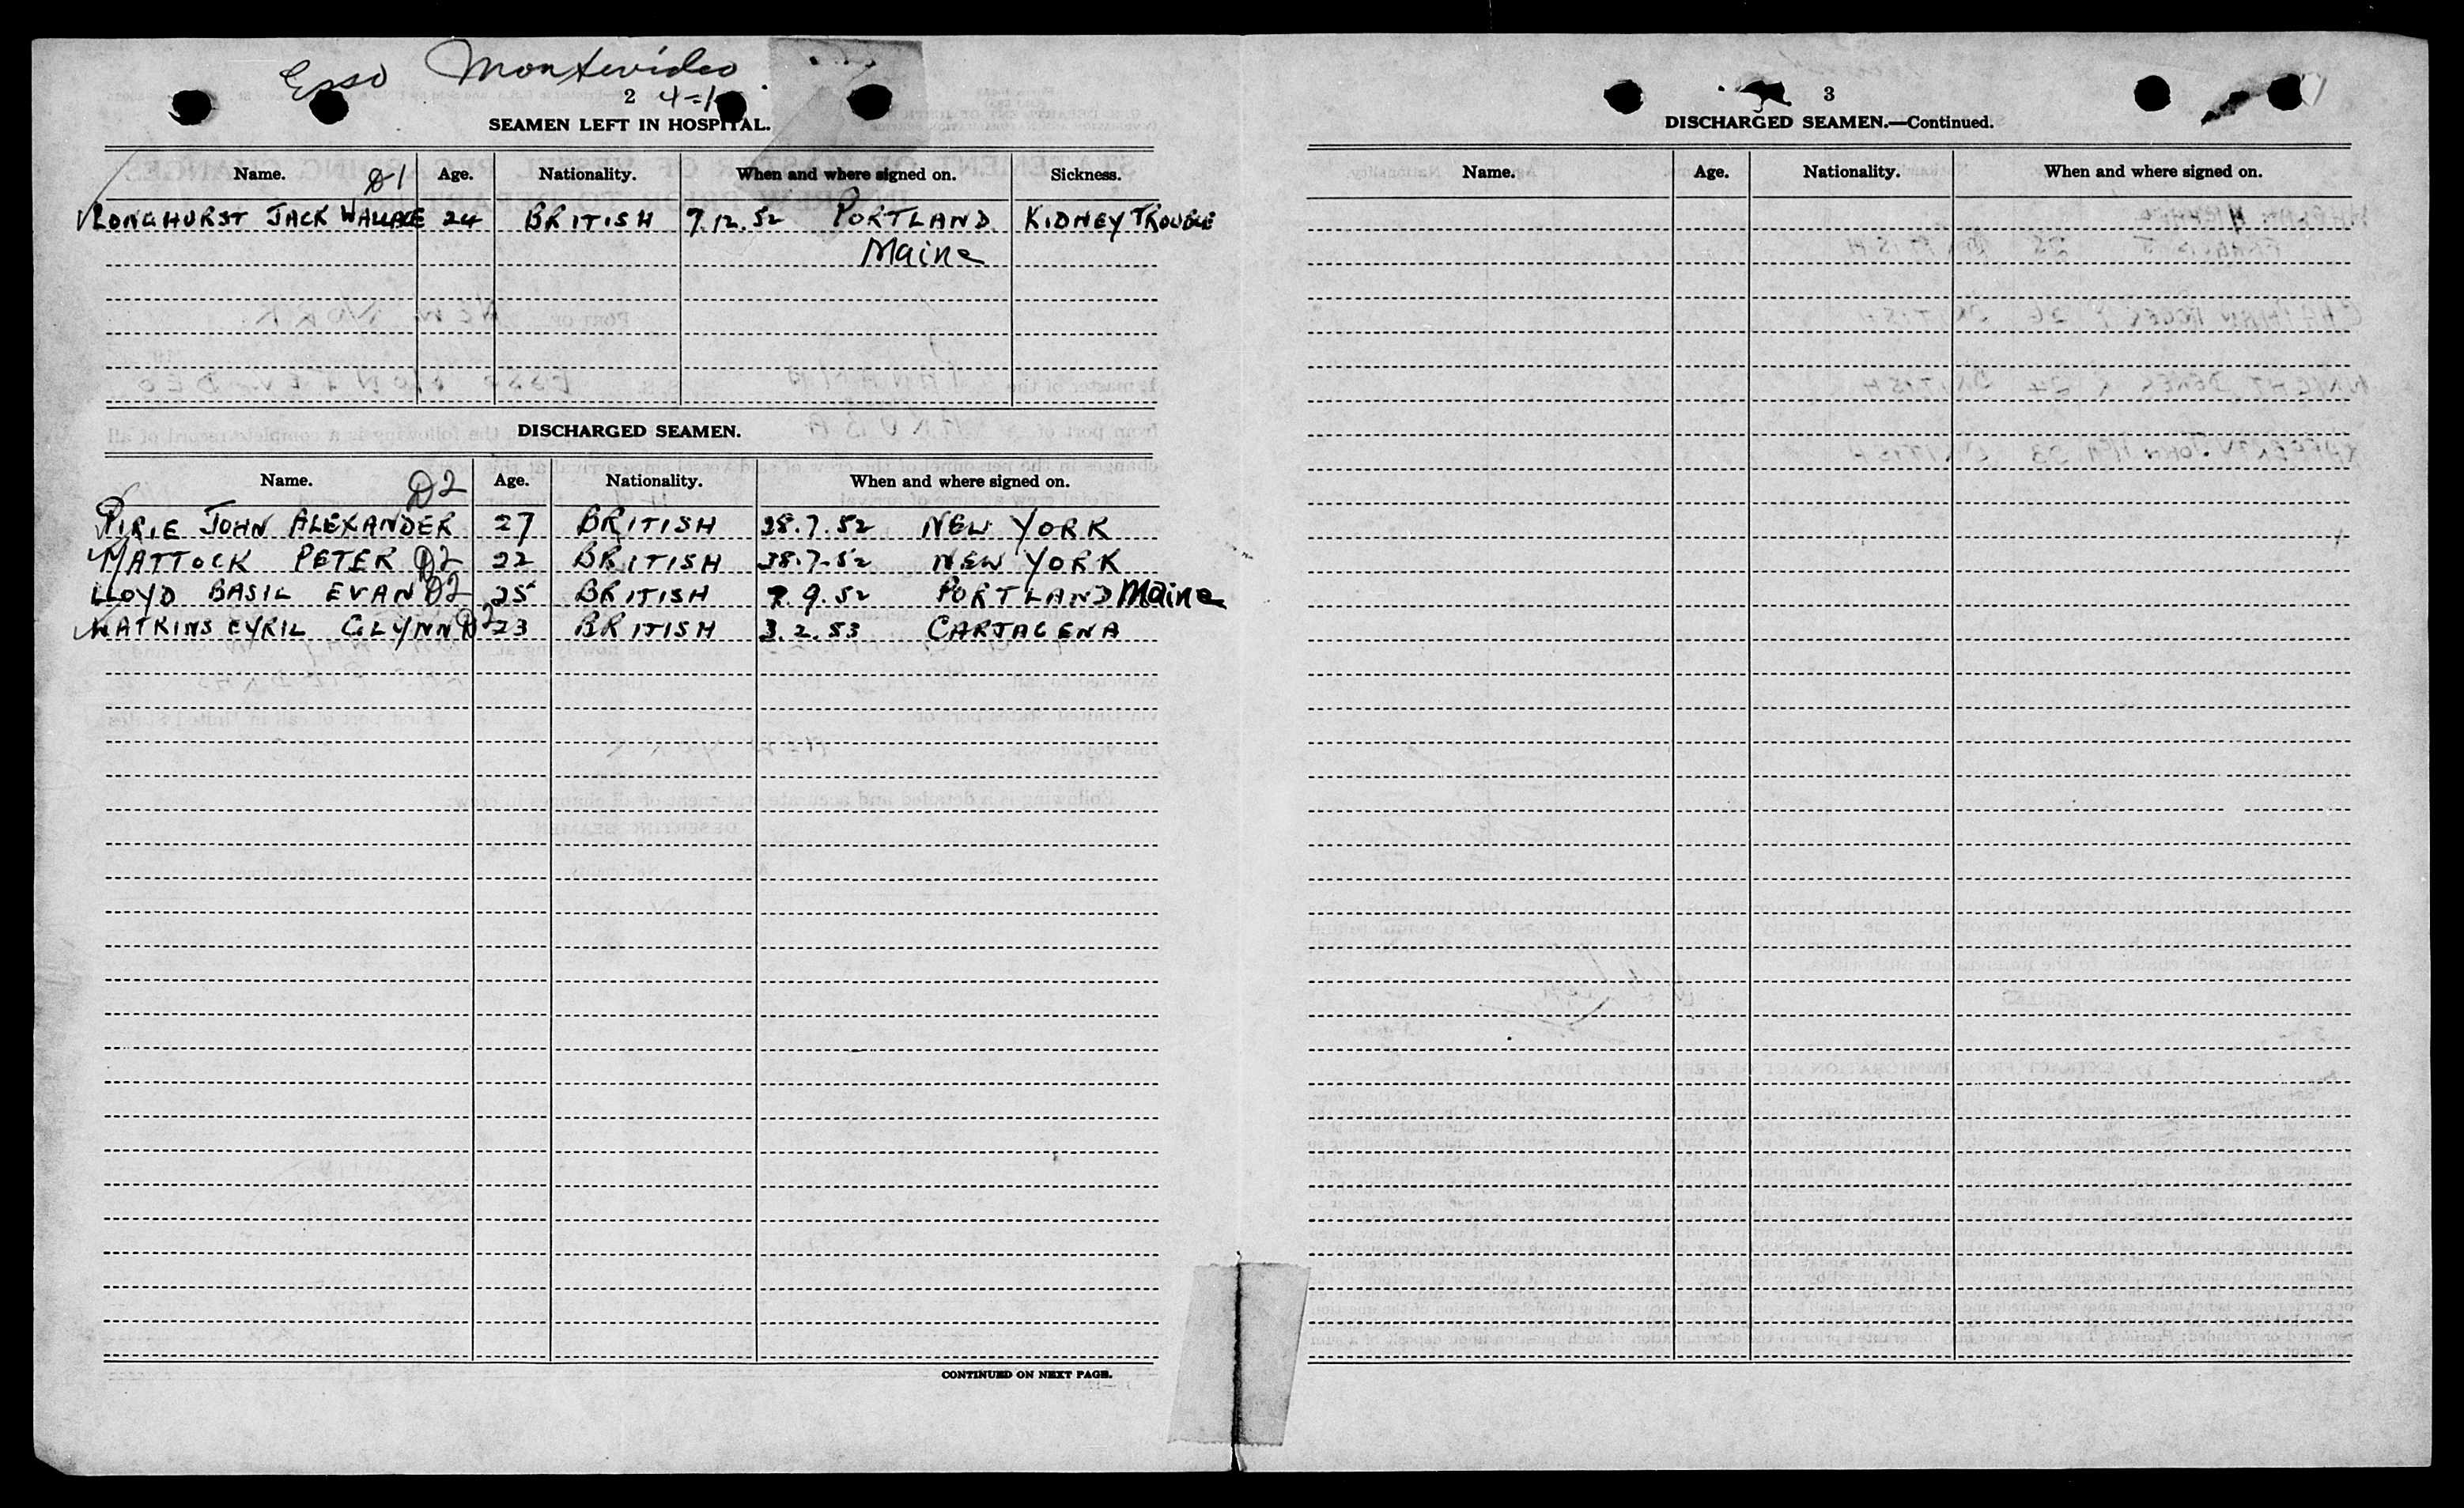 Esso Montevideo
2 4-1
SEAMEN LEFT IN HOSPITAL.
Name. D1 Age. Nationality. When and where signed on. Sickness.
LONGHURST JACK WALLACE 24 BRITISH 9.12.52 PORTLAND KIDNEY TROUBLE
Maine
DISCHARGED SEAMEN.
Name. D2 Age. Nationality. When and where signed on.
PIRIE JOHN ALEXANDER 27 BRITISH 28.7.52 NEW YORK
MATTOCK PETER D2 22 BRITISH 28.7.52 NEW YORK
LLOYD BASIL EVAN D2 25 BRITISH 9.9.52 PORTLAND Maine
WATKINS CYRIL GLYNN D2 23 BRITISH 3.2.53 CARTAGENA
CONTINUED ON NEXT PAGE.
3
DISCHARGED SEAMEN.—Continued.
Name. Age. Nationality. When and where signed on.